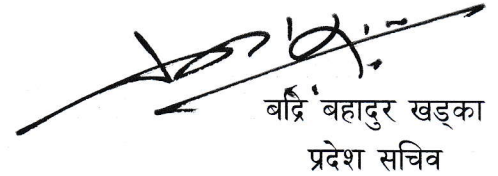 बद्रि बहादुर खड्का
प्रदेश सचिव